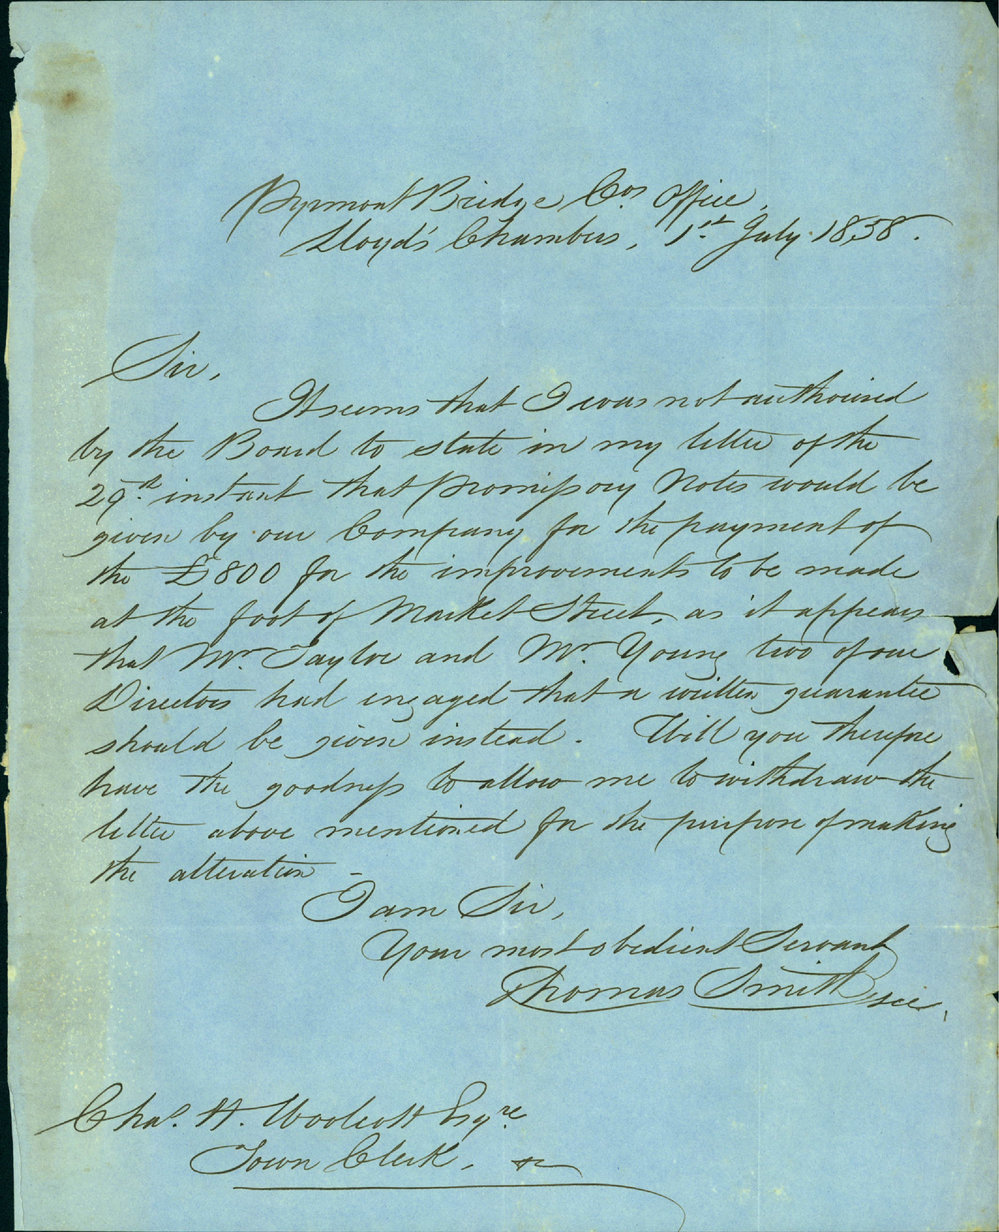 Pyrmont Bridge Cos. Office,
Lloyd's Chambers, 1st. July 1858.
Sir,
It seems that I was not authorised
by the Board to state in my letter of the
29th instant that Promissory Notes would be
given by our Company for the payment of
the £800 for the improvements to be made
at the foot of Market Street, as it appears
that Mr. Taylor and Mr. Young two of our
Directors had engaged that a written guarantee
should be given instead. Will you therefore
have the goodness to allow me to withdraw the
letter above mentioned for the purpose of making
the alteration -
I am Sir,
Your most obedient Servant
Thomas Smith
Chas. H. Woolcott Esqre.
Town Clerk,